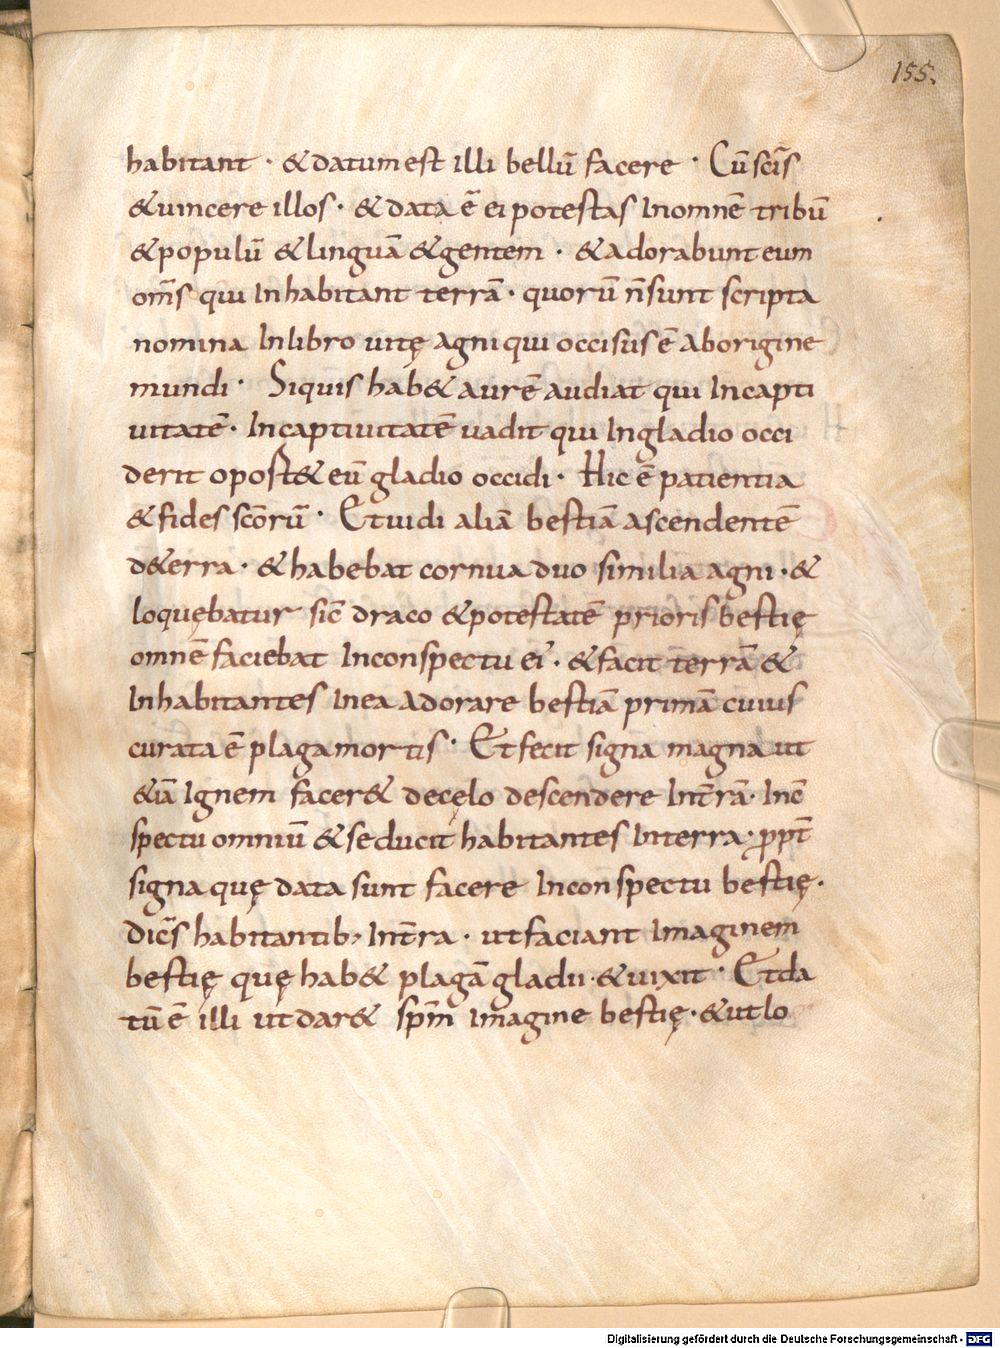 155.
habitant · & datum est illi bellū facere · Cū scīs
& uincere illos · & data ē ei potestas In omnē tribū
& populū & linguā & gentem · & adorabunt eum
om̄s qui Inhabitant terrā · quorū n̄ sunt scripta
nomina In libro uitę agni qui occisus ē ab origine
mundi · Siquis hab& aurē audiat qui In capti
uitatē · In captiuitatē uadit qui In gladio occi
derit oport& eū gladio occidi · Hic ē patientia
& fides scōrū · Et uidi aliā bestiā ascendentē
de t&erra · & habebat cornua duo similia agni · &
loquębatur sic̄ draco & potestatē prioris bestię
omnē faciebat In conspectu ei' · & facit terrā &
Inhabitantes In ea adorare bestiā primā cuius
curata ē plaga mortis · Et fecit signa magna ut
&iā Ignem facer& de cęlo descendere In t̄rā · In c̄
spectu omniū & seducit habitantes In terra · ꝓpt̄
signa quę data sunt facere In conspectu bestię ·
dic̄s habitantib; In t̄ra · ut faciant Imaginem
bestię quę hab& plagā gladii · & uixit · Et da
tū ē illi ut dar& sp̄m Imagine bestię · & ut lo
Digitalisierung gefördert durch die Deutsche Forschungsgemeinschaft - DFG